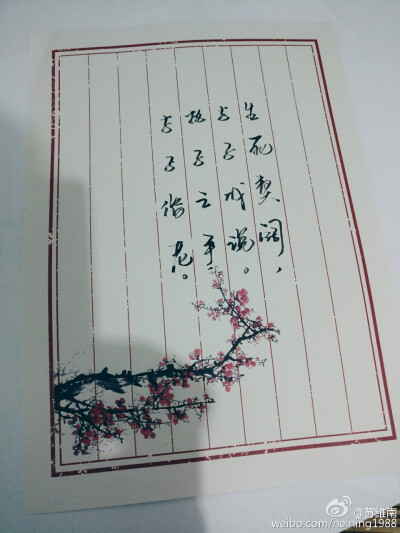 生死契阔，
与子成说。
执子之手，
与子偕老。
@苏维南
weibo.com/neining1988